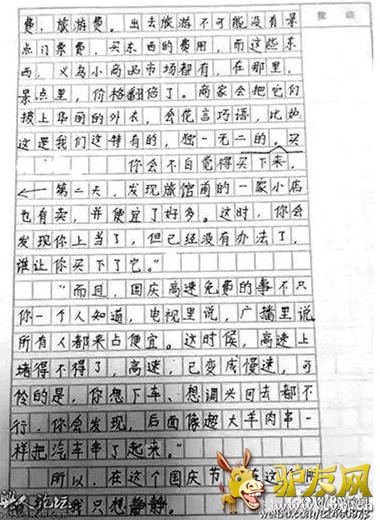 费，旅游费。出去旅游不可能没有景
点门票费，买东西的费用，而这些东
西，义乌小商品市场都有，在那里，
景点里，价格翻倍了。商家会把它们
披上华丽的外衣，会花言巧语，比如
这是我们这特有的，独一无二的。买
你会不自觉得买下来，
第二天，发现旅馆前的一家小店
也有卖，并便宜了好多。这时，你会
发现你上当了，但已经没有办法了，
谁让你买下了它。”
“而且，国庆高速免费的事不只
你一个人知道，电视里说，广播里说
所有人都来占便宜。这时候，高速上
堵得不得了，高速，已变成慢速，可
怜的是，你想下车、想调头回去都不
行，你会发现，后面像超大羊肉串一
样把汽车串了起来。”
所以，在这个国庆节，在这
我只想静静。
驴友网